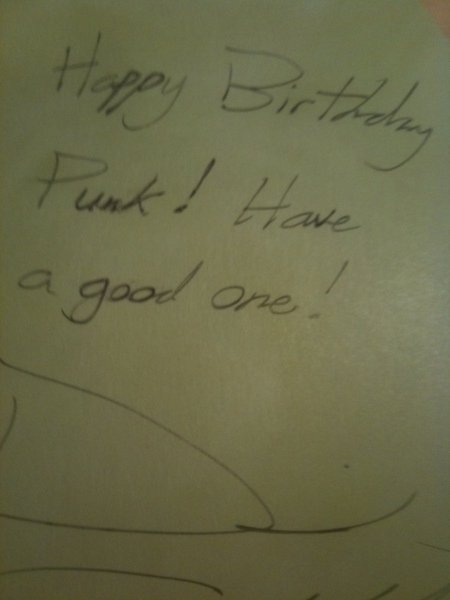 Happy Birthday
Punk! Have
a good one!